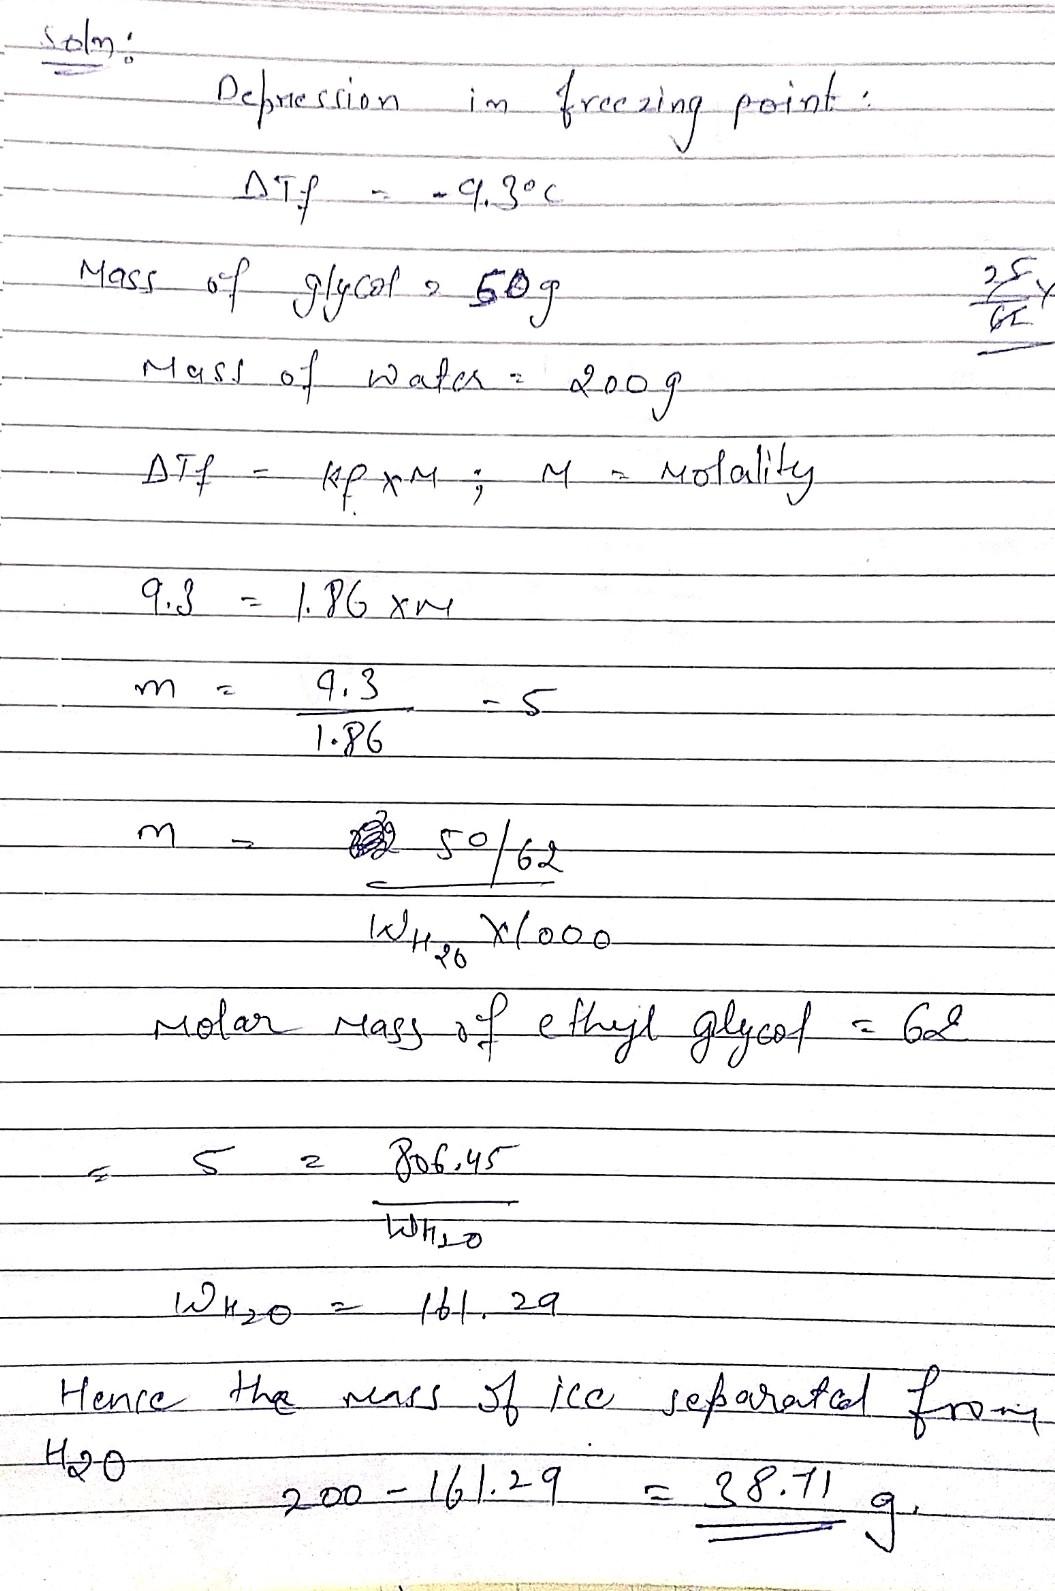 Soln:
Depression in freezing point:
ΔTf = -9.3°C
Mass of glycol = 50g
25/62 x
Mass of water = 200g
ΔTf = Kf x M ; M = Molality
9.3 = 1.86 x M
m = 9.3/1.86 = 5
m = 50/62
WH2O x 1000
Molar Mass of ethyl glycol = 62
= 5 = 806.45/WH2O
WH2O = 161.29
Hence the mass of ice separated from
H2O
200 - 161.29 = 38.71 g.